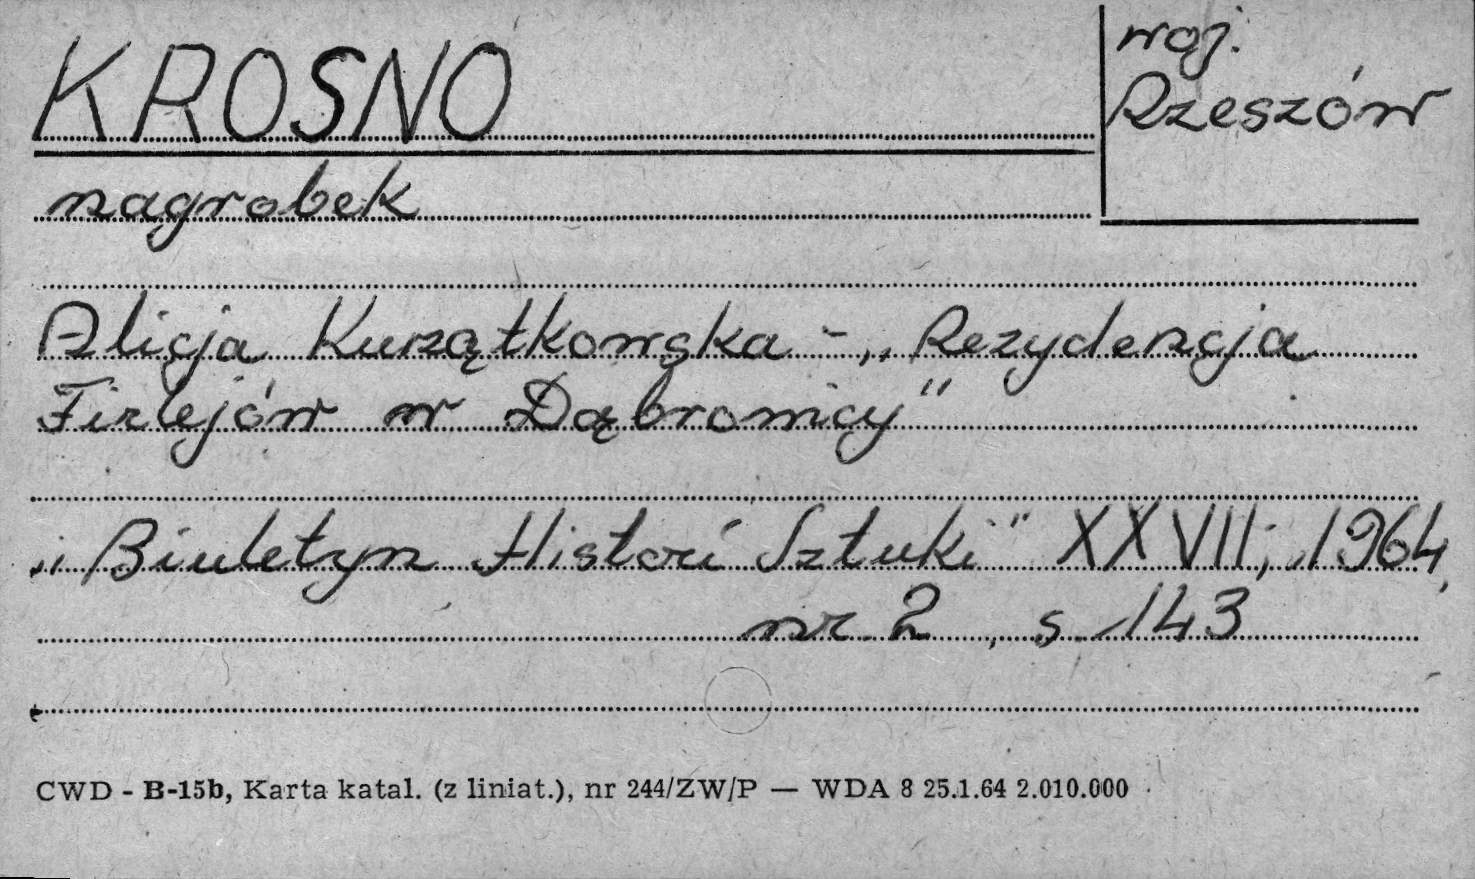 KROSNO
woj.
Rzeszów
nagrobek
Alicja Kurzątkowska - „Rezydencja
Firlejów w Dąbrowicy"
„Biuletyn Histori Sztuki" XXVII, 1964,
nr 2, s. 143
CWD - B-15b, Karta katal. (z liniat.), nr 244/ZW/P — WDA 8 25.1.64 2.010.000